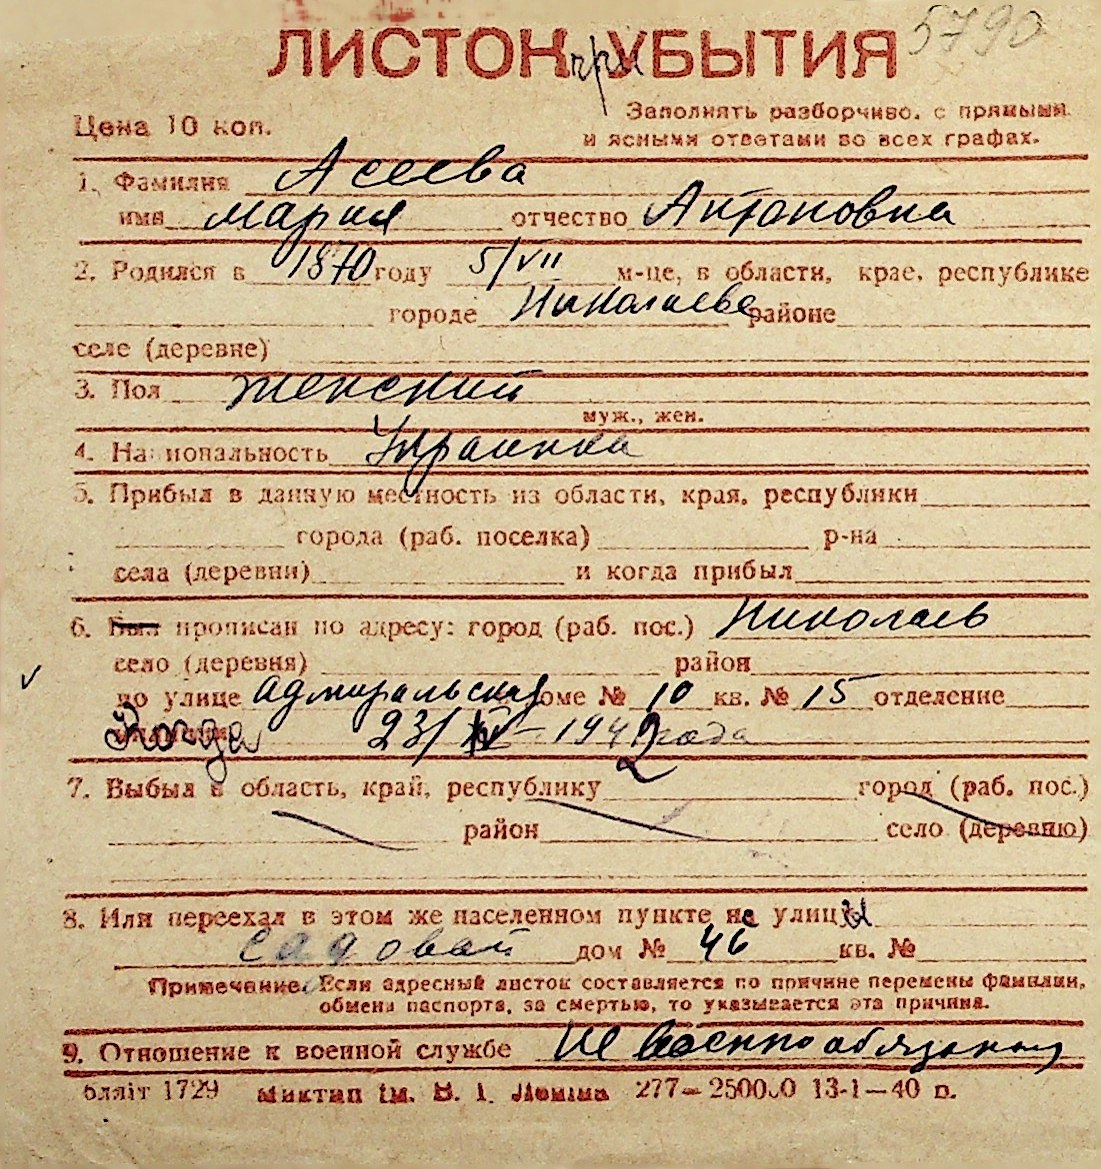 5790
ЛИСТОК при УБЫТИЯ
Цена 10 коп.
Заполнять разборчиво, с прямыми
и ясными ответами во всех графах.
1. Фамилия Асеева
имя Мария отчество Антоновна
2. Родился в 1870 году 5/VII м-це, в области, крае, республике
городе Николаеве районе
селе (деревне)
3. Пол женский
муж., жен.
4. Национальность Украинка
5. Прибыл в данную местность из области, края, республики
города (раб. поселка) р-на
села (деревни) и когда прибыл
6. Был прописан по адресу: город (раб. пос.) Николаев
село (деревня) район
по улице Адмиральская доме № 10 кв. № 15 отделение
Когда 23/IV-1942 года
7. Выбыл в область, край, республику город (раб. пос.)
район село (деревню)
8. Или переехал в этом же населенном пункте не улицы
Садовой дом № 46 кв. №
Примечание. Если адресный листок составляется по причине перемены фамилии,
обмена паспорта, за смертью, то указывается эта причина.
9. Отношение к военной службе Не военнообязанный
бляіт 1729 Миктип ім. В. І. Леніна 277—250000 13-1—40 р.